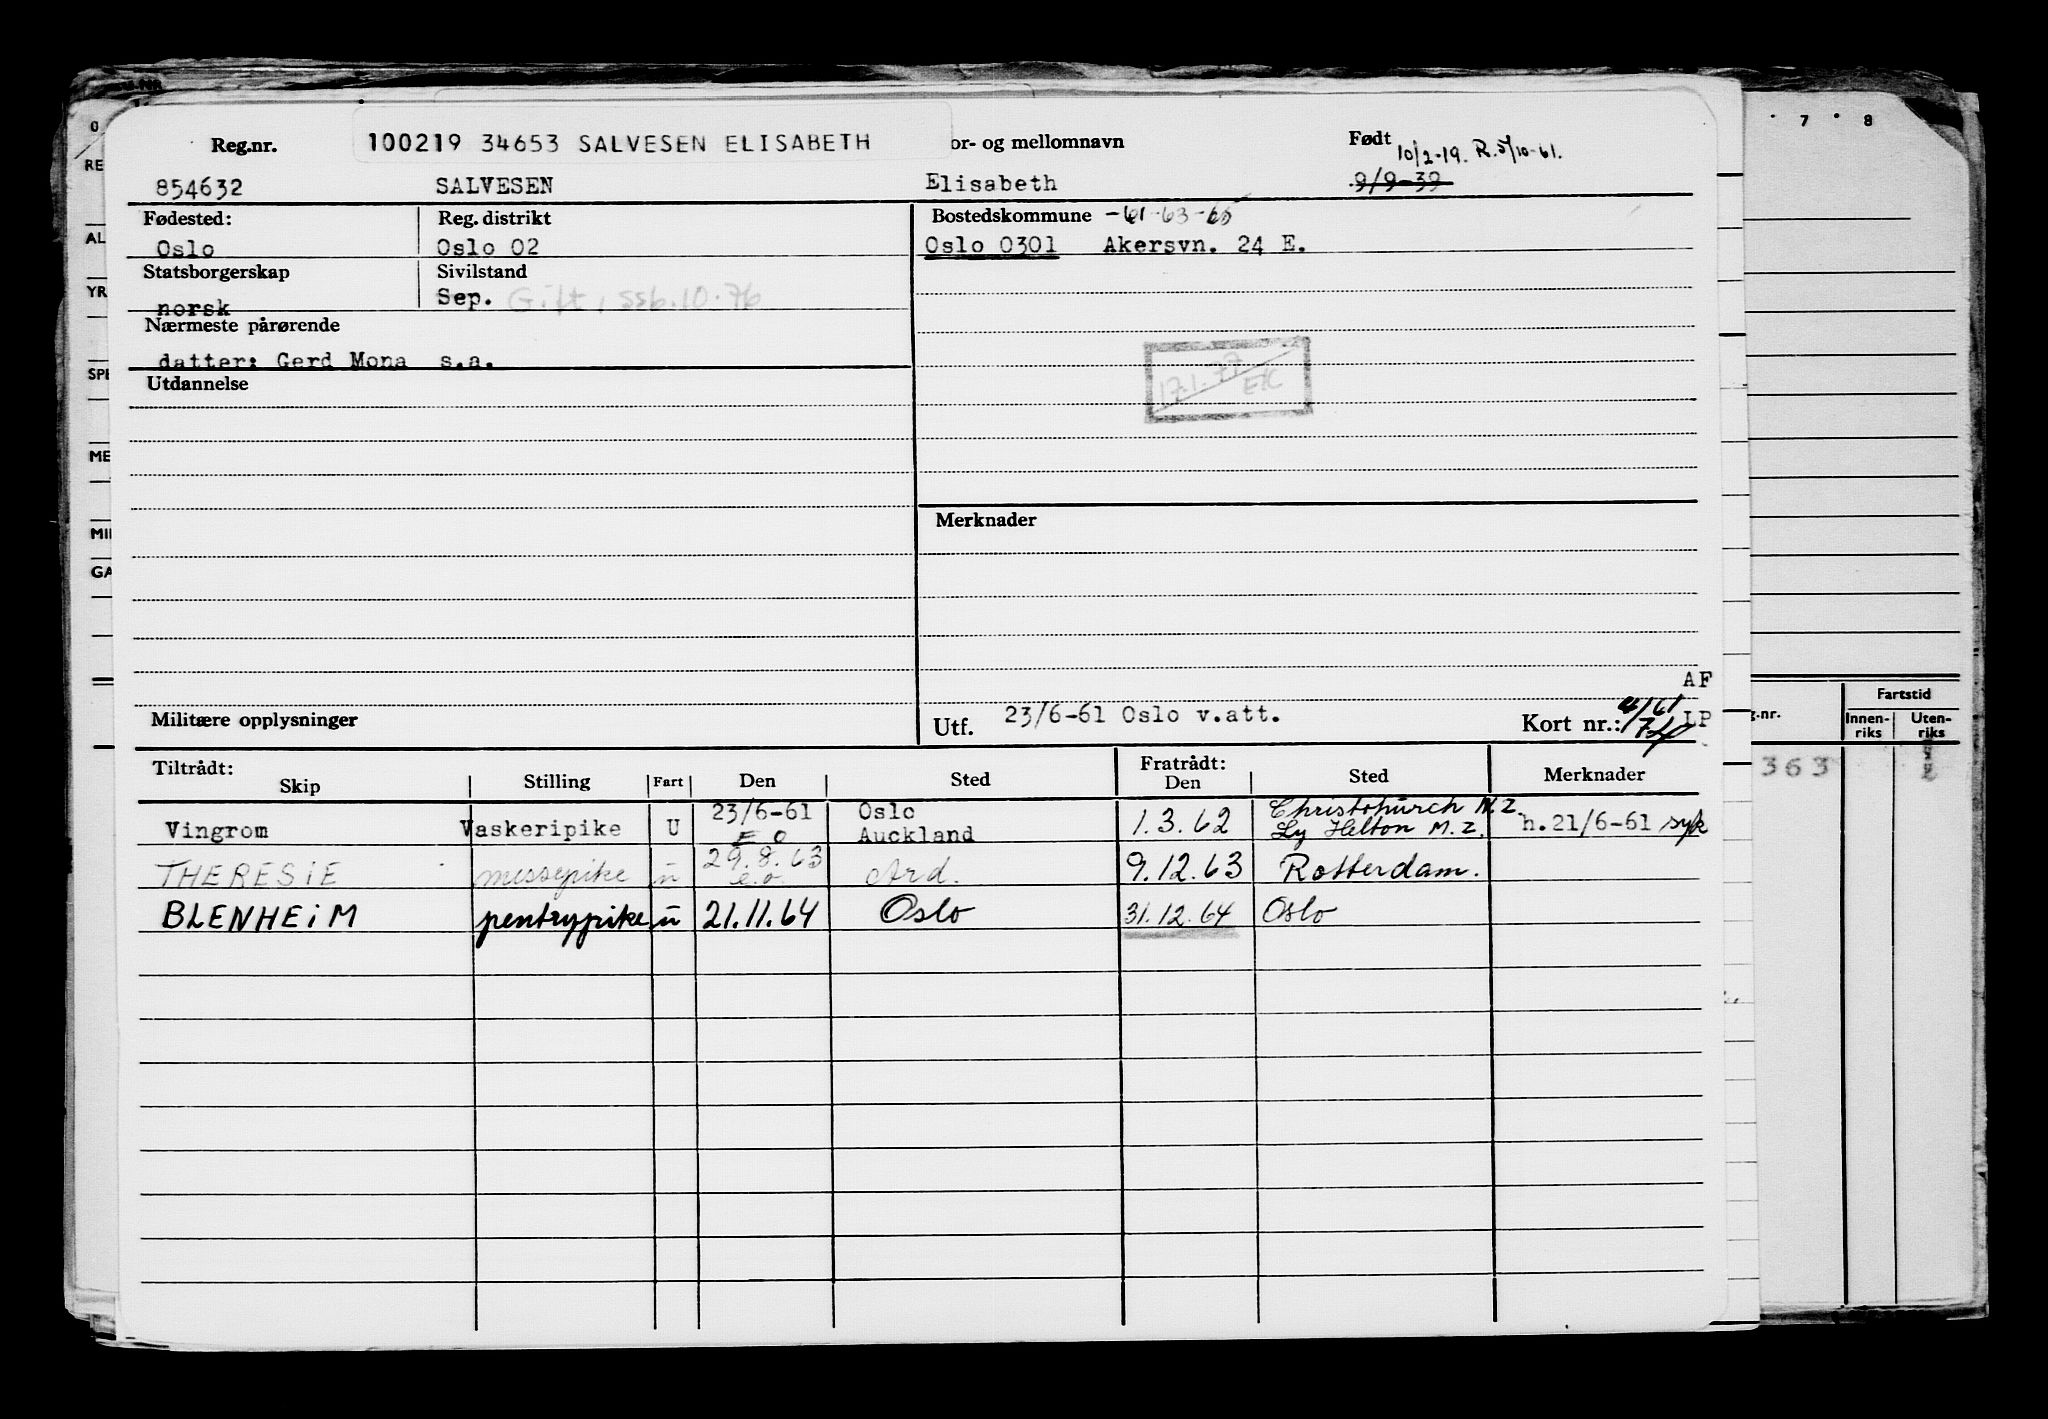 Reg.nr. 100219 34653 SALVESEN ELISABETH or- og mellomnavn Født 10/2-19. R.5/10-61.
854632 SALVESEN Elisabeth 9/9-39
Fødested: Reg. distrikt Bostedskommune -61-63-65
Oslo Oslo 02 Oslo 0301 Akersvn. 24 E.
Statsborgerskap Sivilstand
norsk Sep. Gift, ssb.10.76
Nærmeste pårørende
datter: Gerd Mona s.a.
17.1.77
EK
Utdannelse
Merknader
AF
Militære opplysninger Utf. 23/6-61 Oslo v.att. Kort nr.: 4/61 LP
Tiltrådt: Fratrådt:
Skip Stilling Fart Den Sted Den Sted Merknader
Vingrom Vaskeripike U 23/6-61 Oslo 1.3.62 Christchurch N.Z. h.21/6-61 syk
E O Auckland
THERESIE messepike u 29.8.63 Ard. 9.12.63 Rotterdam.
e.o.
BLENHEIM pentrypike u 21.11.64 Oslo 31.12.64 Oslo
0 7 8
RE
AL
YR
SPE
ME
MIL
GA
g.nr. Fartstid
Innen-riks Uten-riks
363